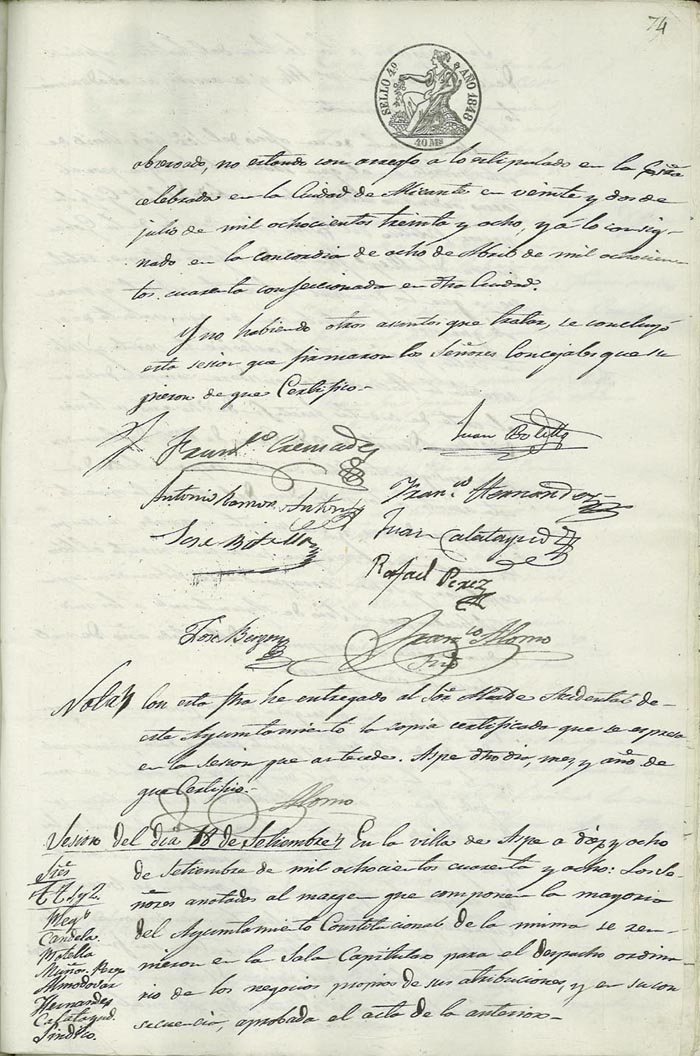 74
SELLO 4º AÑO 1848
40 Ms
abonado, no estando con arreglo a lo estipulado en la
celebrada en la Ciudad de Alicante en veinte y dos de
julio de mil ochocientos treinta y ocho, y á lo consig-
nado en la concordia de ocho de Abril de mil ochocien
tos cuarenta confeccionada en dha Ciudad.
Y no habiendo otros asuntos que tratar, se concluyó
esta sesion que firmaron los Señores Concejales que su
pieron de que Certifico-
Franco Cremades
Juan Botella
Antonio Ramon Antonio
Franco Hernandez
Jose Botella
Juan Calatayud
Rafael Perez
Jose
Franco Alomo
Srio
Nota Con esta fha he entregado al Sor Alcalde Accidental de
este Ayuntamiento la copia certificada que se espresa
en la sesion que antecede. Aspe dho dia, mes, y año de
que Certifico.-
Alomo
Sesion del dia 18 de Setiembre En la villa de Aspe a diez y ocho
Sres
de Setiembre de mil ochocientos cuarenta y ocho: Los Se-
Tt. 1 y 2.
ñores anotados al margen que componen la mayoria
Candela.
del Ayuntamiento Constitucional de la misma se reu-
Botella
nieron en la Sala Capitular para el despacho ordina
Muñoz.
Almodovar
rio de los negocios propios de sus atribuciones, y en su con
Hernandez
Calatayud.
secuencia, aprobada el acta de la anterior-
Sindico.